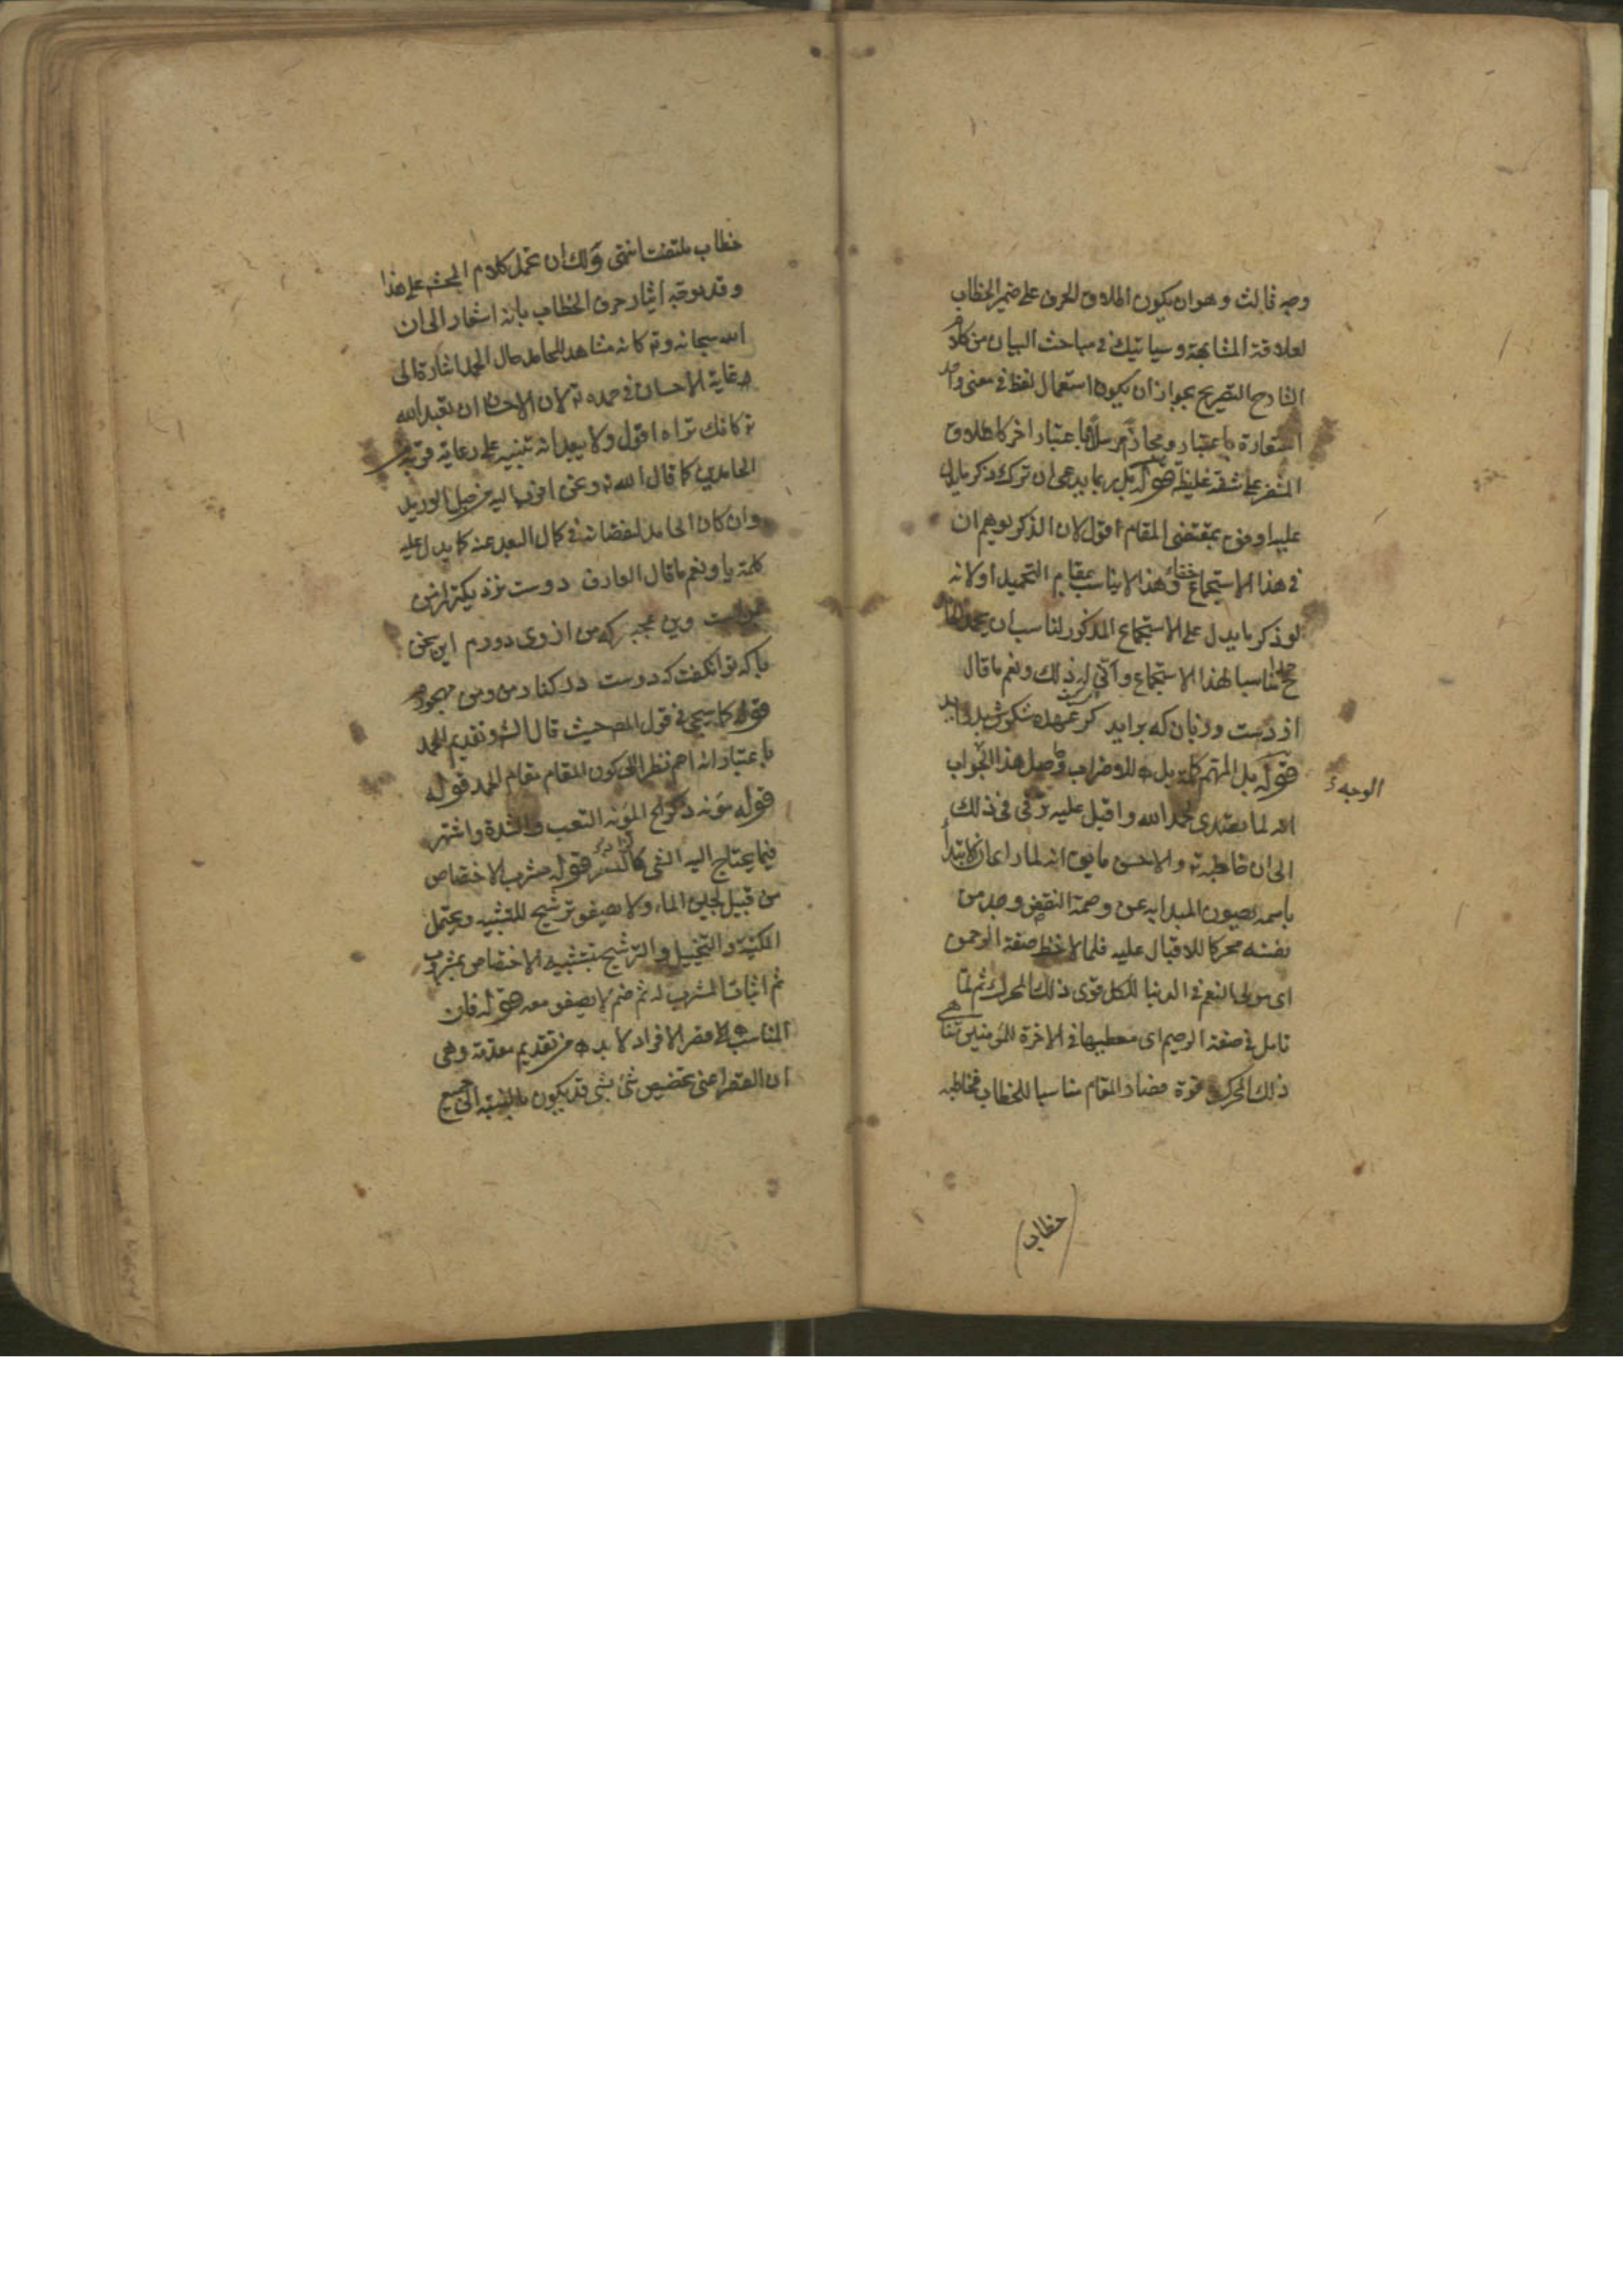 وجه ثالث وهو ان يكون اطلاق الحرف على ضمير الخطاب
لعلاقة المشابهة وسيأتيك في مباحث البيان من كلام
الشارح التصريح بجواز ان يكون استعمال لفظ في معنى واحد
استعارة باعتبار ومجازا مرسلا باعتبار اخر كاطلاق
المشفر على شفة غليظة قوله بل ربما يدعى ان ترك ذكر ما يدل
عليه اوفى بمقتضى المقام اقول لان الذكر يوهم ان
في هذا الاستجماع خفاء وهذا لا يناسب بمقام التحميد او لانه
لو ذكر ما يدل على الاستجماع المذكور لناسب ان يحمد
ح حمدا مناسبا لهذا الاستجماع وأنى له ذلك ونعم ما قال
از دست وزبان كه برايد كز عهده شكرش بدر ايد
قوله بل المهتم كلمة بل للاضراب وحاصل هذا الجواب
الوجه
انه لما تصدى لحمد الله واقبل عليه ترقى في ذلك
الى ان خاطبه والاحسن ما يق انه لما راعا في الابتدأ
باسمه يصون المبدا به عن وصمة النقص وجد من
نفسه محركا للاقبال عليه فلما لاحظ صفة الرحمن
اى مولى النعم في الدنيا للكل قوى ذلك المحرك ثم لما
تامل في صفة الرحيم اى معطيها في الاخرة للمؤمنين تناهى
ذلك المحرك قوة فصار المقام مناسبا للخطاب فخاطبه
خطاب
خطاب ملتفت انتهى ولك ان تحمل كلام المحشى على هذا
وقد يوجه ايثار حرف الخطاب بانه اشعار الى ان
الله سبحانه وتع كانه مشاهد للحامد حال الحمد اشارة الى
رعاية الاحسان في حمده تع لان الاحسان ان تعبد الله
تع كانك تراه اقول ولا يبعد انه تنبيه على رعاية قربه من
الحامدين كما قال الله تع ونحن اقرب اليه من حبل الوريد
وان كان الحامد لنقصانه في كمال البعد عنه كما يدل عليه
كلمة يا ونعم ما قال العارف دوست نزديكتر از من
بمن است وين عجبتر كه من از وى دورم اين سخن
با كه توان گفت كه دوست در كنار من ومن مهجورم
قوله كما سيجئ في قول المص حيث قال الش وتقديم الحمد
باعتبار انه اهم نظرا الى كون المقام مقام الحمد قوله
قوله مؤنة ذكر الخ المؤنة التعب والشدة واشتهر
فيما يحتاج اليه الشئ قوله مشرب الاختصاص
من قبيل لجين الماء ولا يصفو ترشيح للتشبيه ويحتمل
المكنية والتخييل والترشيح بتشبيه الاختصاص بمشروب
ثم اثبات المشرب له ثم ضم لا يصفو معه قوله فان
المناسب لقصر الافراد لا بد من تقديم مقدمة وهى
ان القصر اعنى تخصيص شئ بشئ قد يكون بالنسبة الى جميع